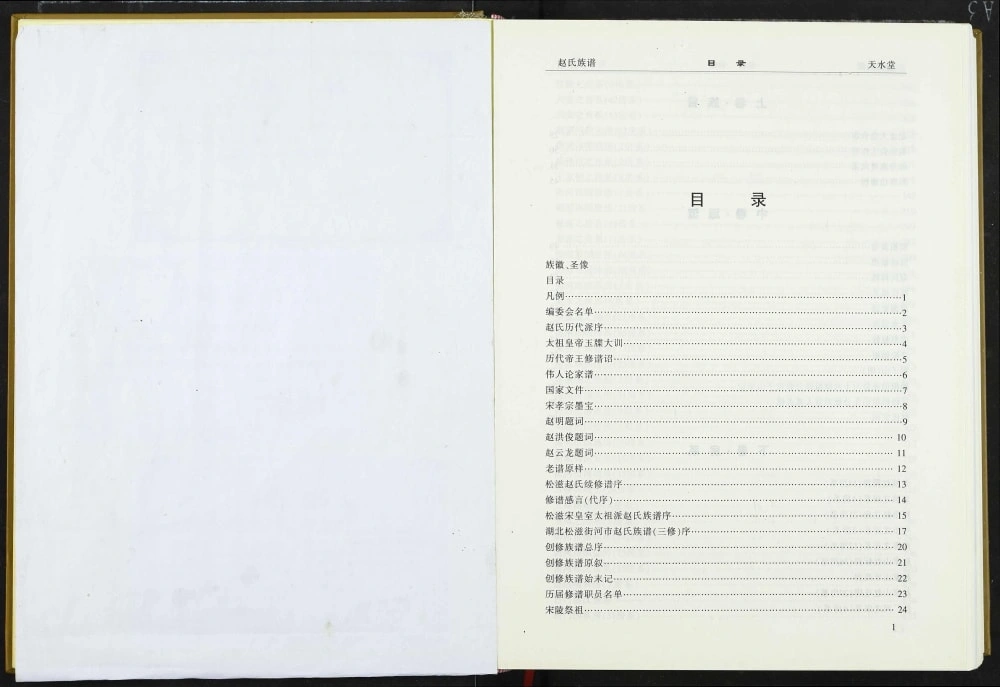 A3
赵氏族谱 目 录 天水堂
目 录
族徽、圣像
目录
凡例……1
编委会名单……2
赵氏历代派序……3
太祖皇帝玉牒大训……4
历代帝王修谱诏……5
伟人论家谱……6
国家文件……7
宋孝宗墨宝……8
赵明题词……9
赵洪俊题词……10
赵云龙题词……11
老谱原样……12
松滋赵氏续修谱序……13
修谱感言(代序)……14
松滋宋皇室太祖派赵氏族谱序……15
湖北松滋街河市赵氏族谱(三修)序……17
创修族谱总序……20
创修族谱原叙……21
创修族谱始末记……22
历届修谱职员名单……23
宋陵祭祖……24
1